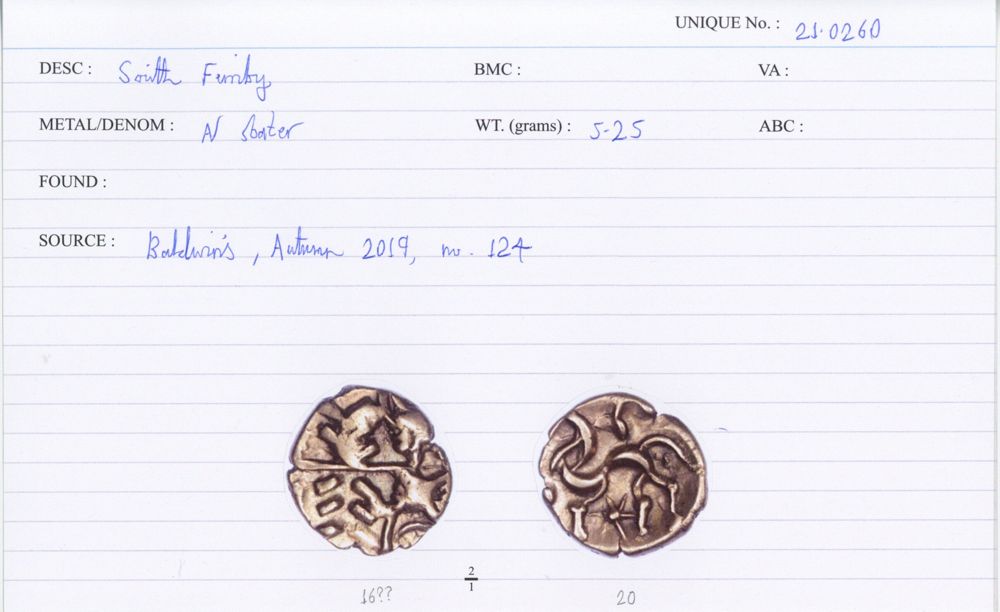 UNIQUE No. : 21.0260
DESC : South Ferriby BMC : VA :
METAL/DENOM : N stater WT. (grams) : 5.25 ABC :
FOUND :
SOURCE : Baldwin's, Autumn 2019, no. 124
2
1
16?? 20